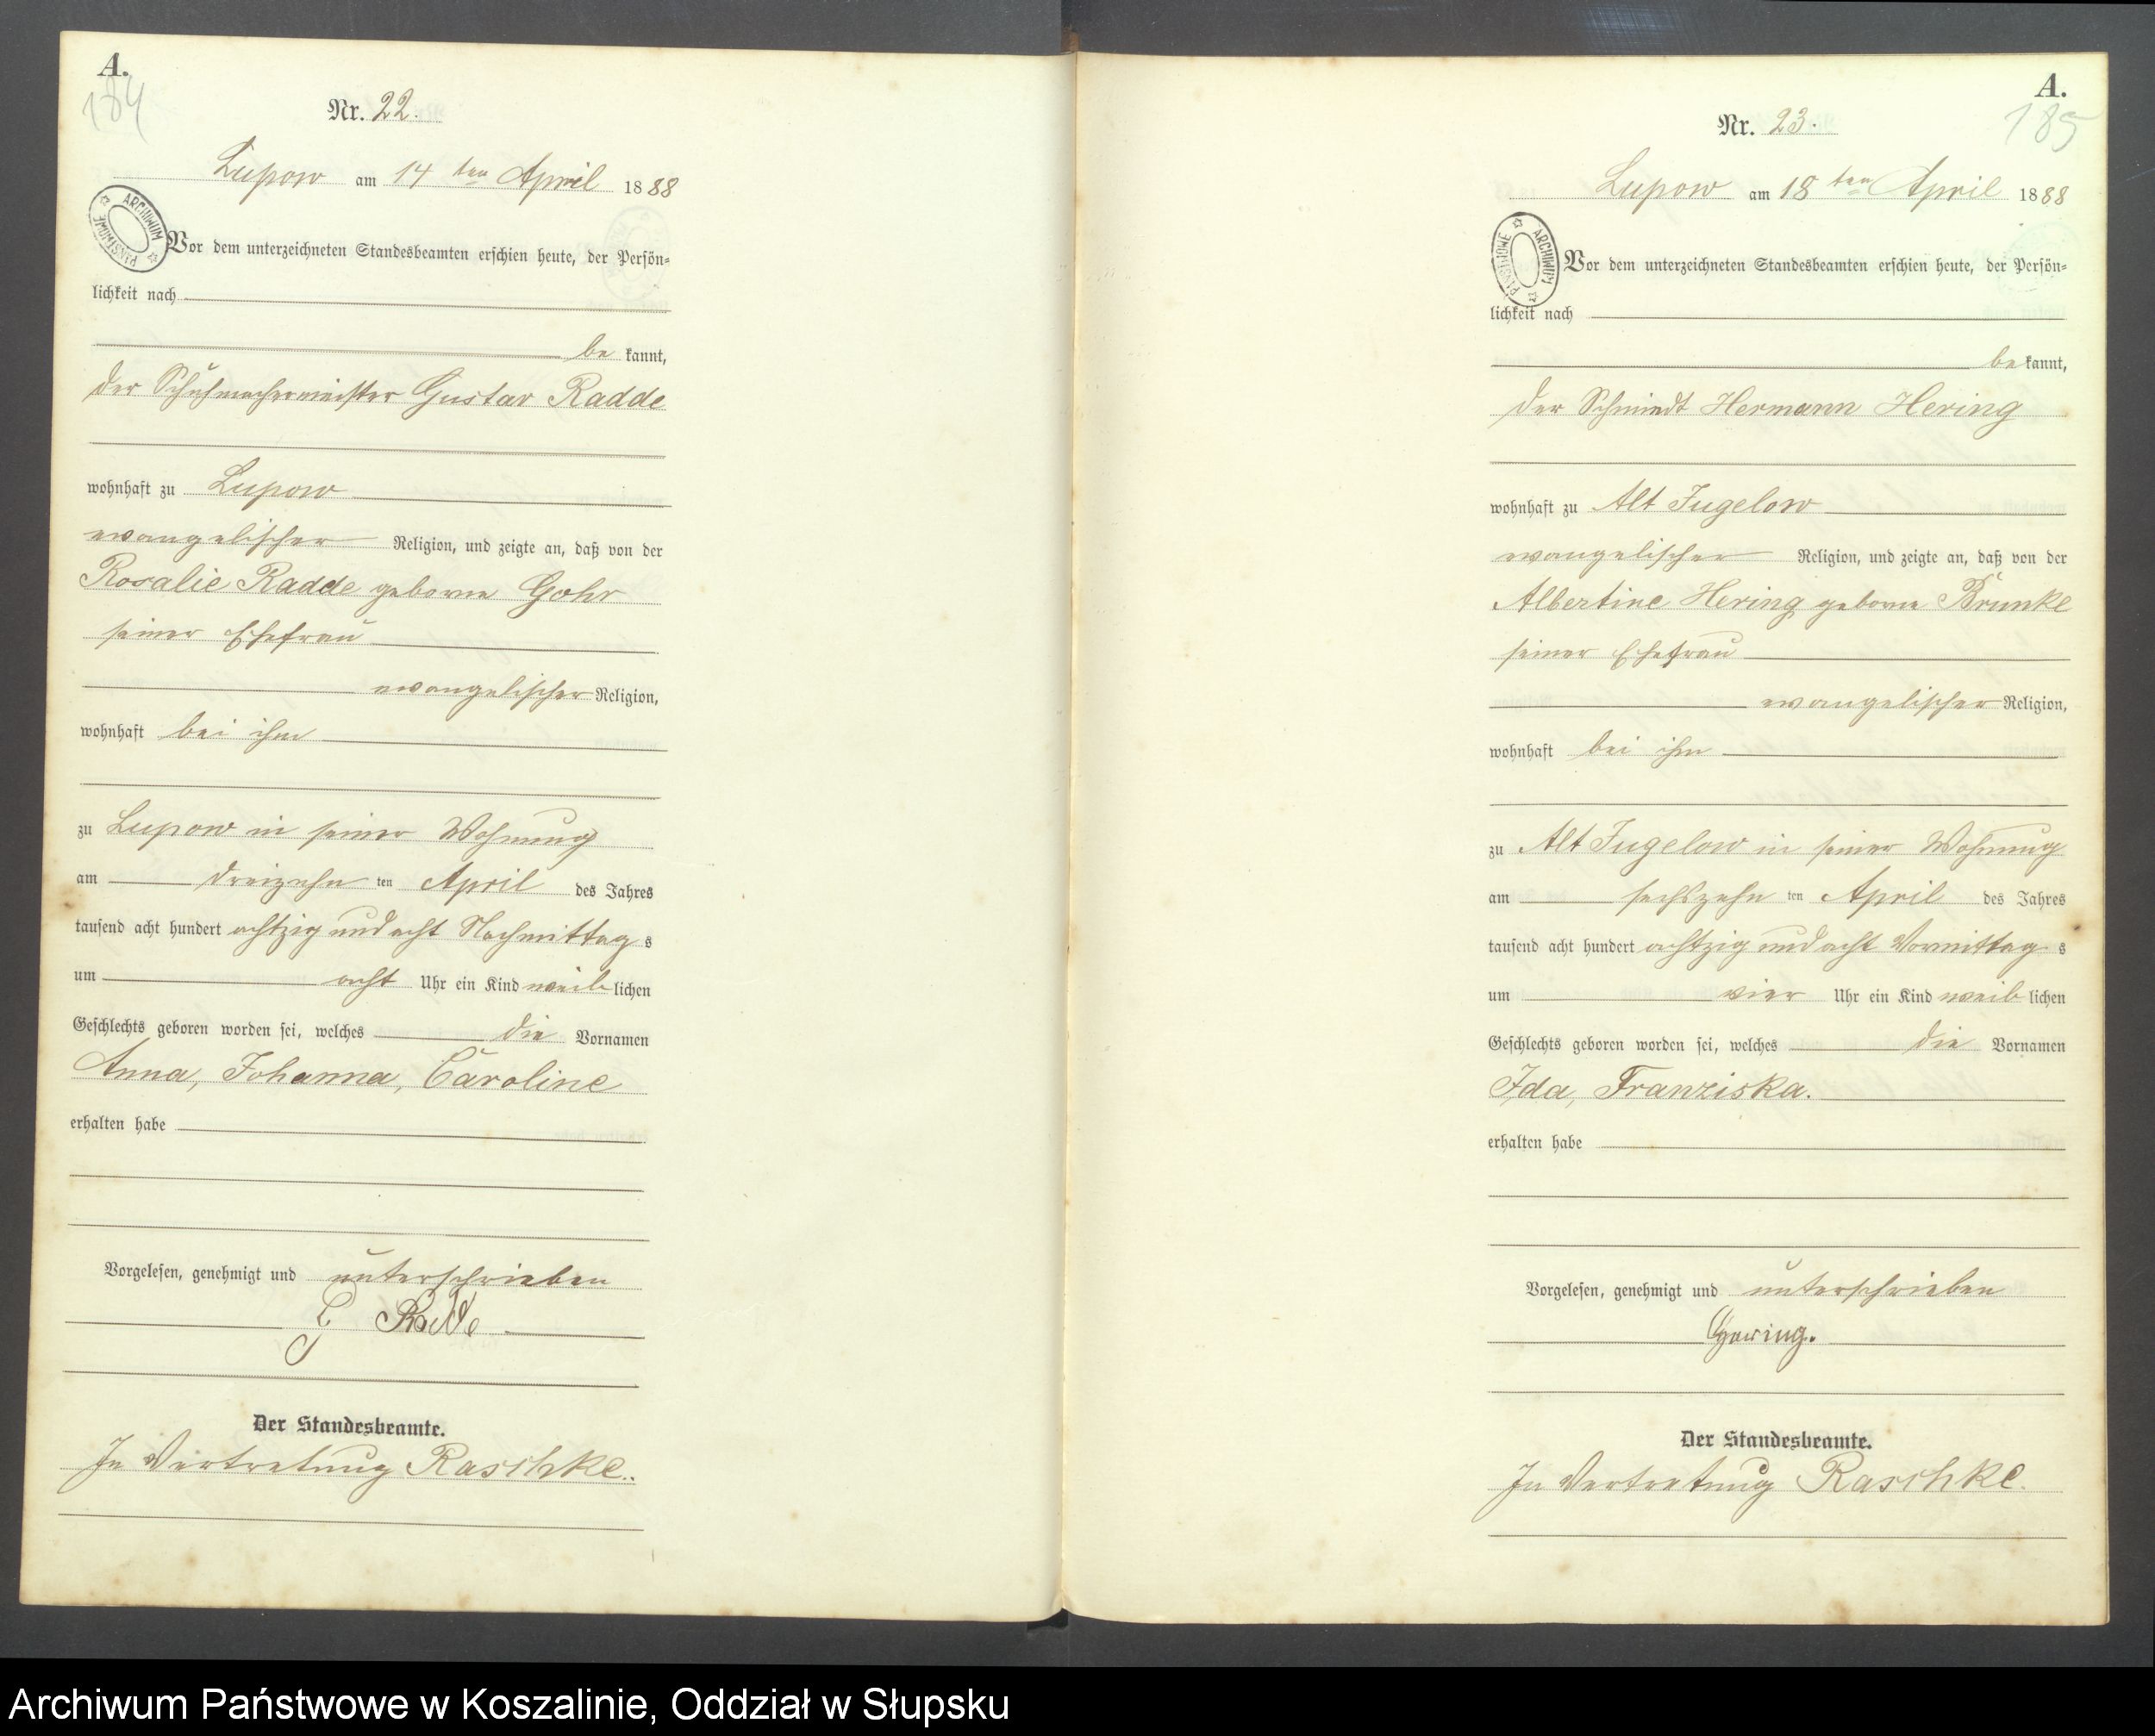 A.
184
Nr. 22.
Lupow am 14 ten April 1888
ARCHIWUM PAŃSTWOWE
Vor dem unterzeichneten Standesbeamten erschien heute, der Persön=
lichkeit nach
be kannt,
der Schuhmachermeister Gustav Radde
wohnhaft zu Lupow
evangelischer Religion, und zeigte an, daß von der
Rosalie Radde geborne Gohr
seiner Ehefrau
evangelischer Religion,
wohnhaft bei ihm
zu Lupow in seiner Wohnung
am dreizehn ten April des Jahres
tausend acht hundert achtzig und acht Nachmittag s
um acht Uhr ein Kind weib lichen
Geschlechts geboren worden sei, welches die Vornamen
Anna, Johanna, Caroline
erhalten habe
Vorgelesen, genehmigt und unterschrieben
G Radde
Der Standesbeamte.
In Vertretung Raschke.
A.
185
Nr. 23.
Lupow am 18 ten April 1888
ARCHIWUM PAŃSTWOWE
Vor dem unterzeichneten Standesbeamten erschien heute, der Persön=
lichkeit nach
be kannt,
der Schmiedt Hermann Hering
wohnhaft zu Alt Jugelow
evangelischer Religion, und zeigte an, daß von der
Albertine Hering geborne Brunke
seiner Ehefrau
evangelischer Religion,
wohnhaft bei ihm
zu Alt Jugelow in seiner Wohnung
am sechszehn ten April des Jahres
tausend acht hundert achtzig und acht Vormittag s
um vier Uhr ein Kind weib lichen
Geschlechts geboren worden sei, welches die Vornamen
Ida, Franziska.
erhalten habe
Vorgelesen, genehmigt und unterschrieben
Hering.
Der Standesbeamte.
In Vertretung Raschke.
Archiwum Państwowe w Koszalinie, Oddział w Słupsku